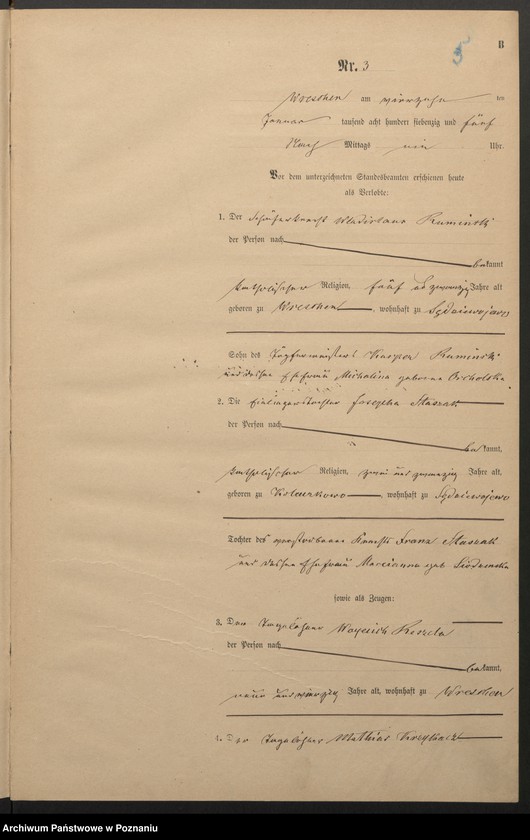 5
B
Nr. 3
Wreschen am vierzehn ten
Januar tausend acht hundert siebenzig und fünf
Nach Mittags ein Uhr.
Vor dem unterzeichneten Standesbeamten erschienen heute
als Verlobte:
1. Der Wladislaus Ruminski
der Person nach
bekannt
katholischer Religion, fünf und zwanzig Jahre alt
geboren zu Wreschen, wohnhaft zu Sędziwojewo
Sohn des Töpfermeisters Kaspar Ruminski
und dessen Ehefrau Michalina geborene
2. Die Einliegertochter Josepha Staszak
der Person nach
bekannt,
katholischer Religion, zwei und zwanzig Jahre alt,
geboren zu, wohnhaft zu Sędziwojewo
Tochter des verstorbenen Knechts Franz Staszak
und dessen Ehefrau Marianna geb
sowie als Zeugen:
3. Den Tagelöhner Woyciech
der Person nach
bekannt,
neun und vierzig Jahre alt, wohnhaft zu Wreschen
4. Der Tagelöhner Mathias
Archiwum Państwowe w Poznaniu